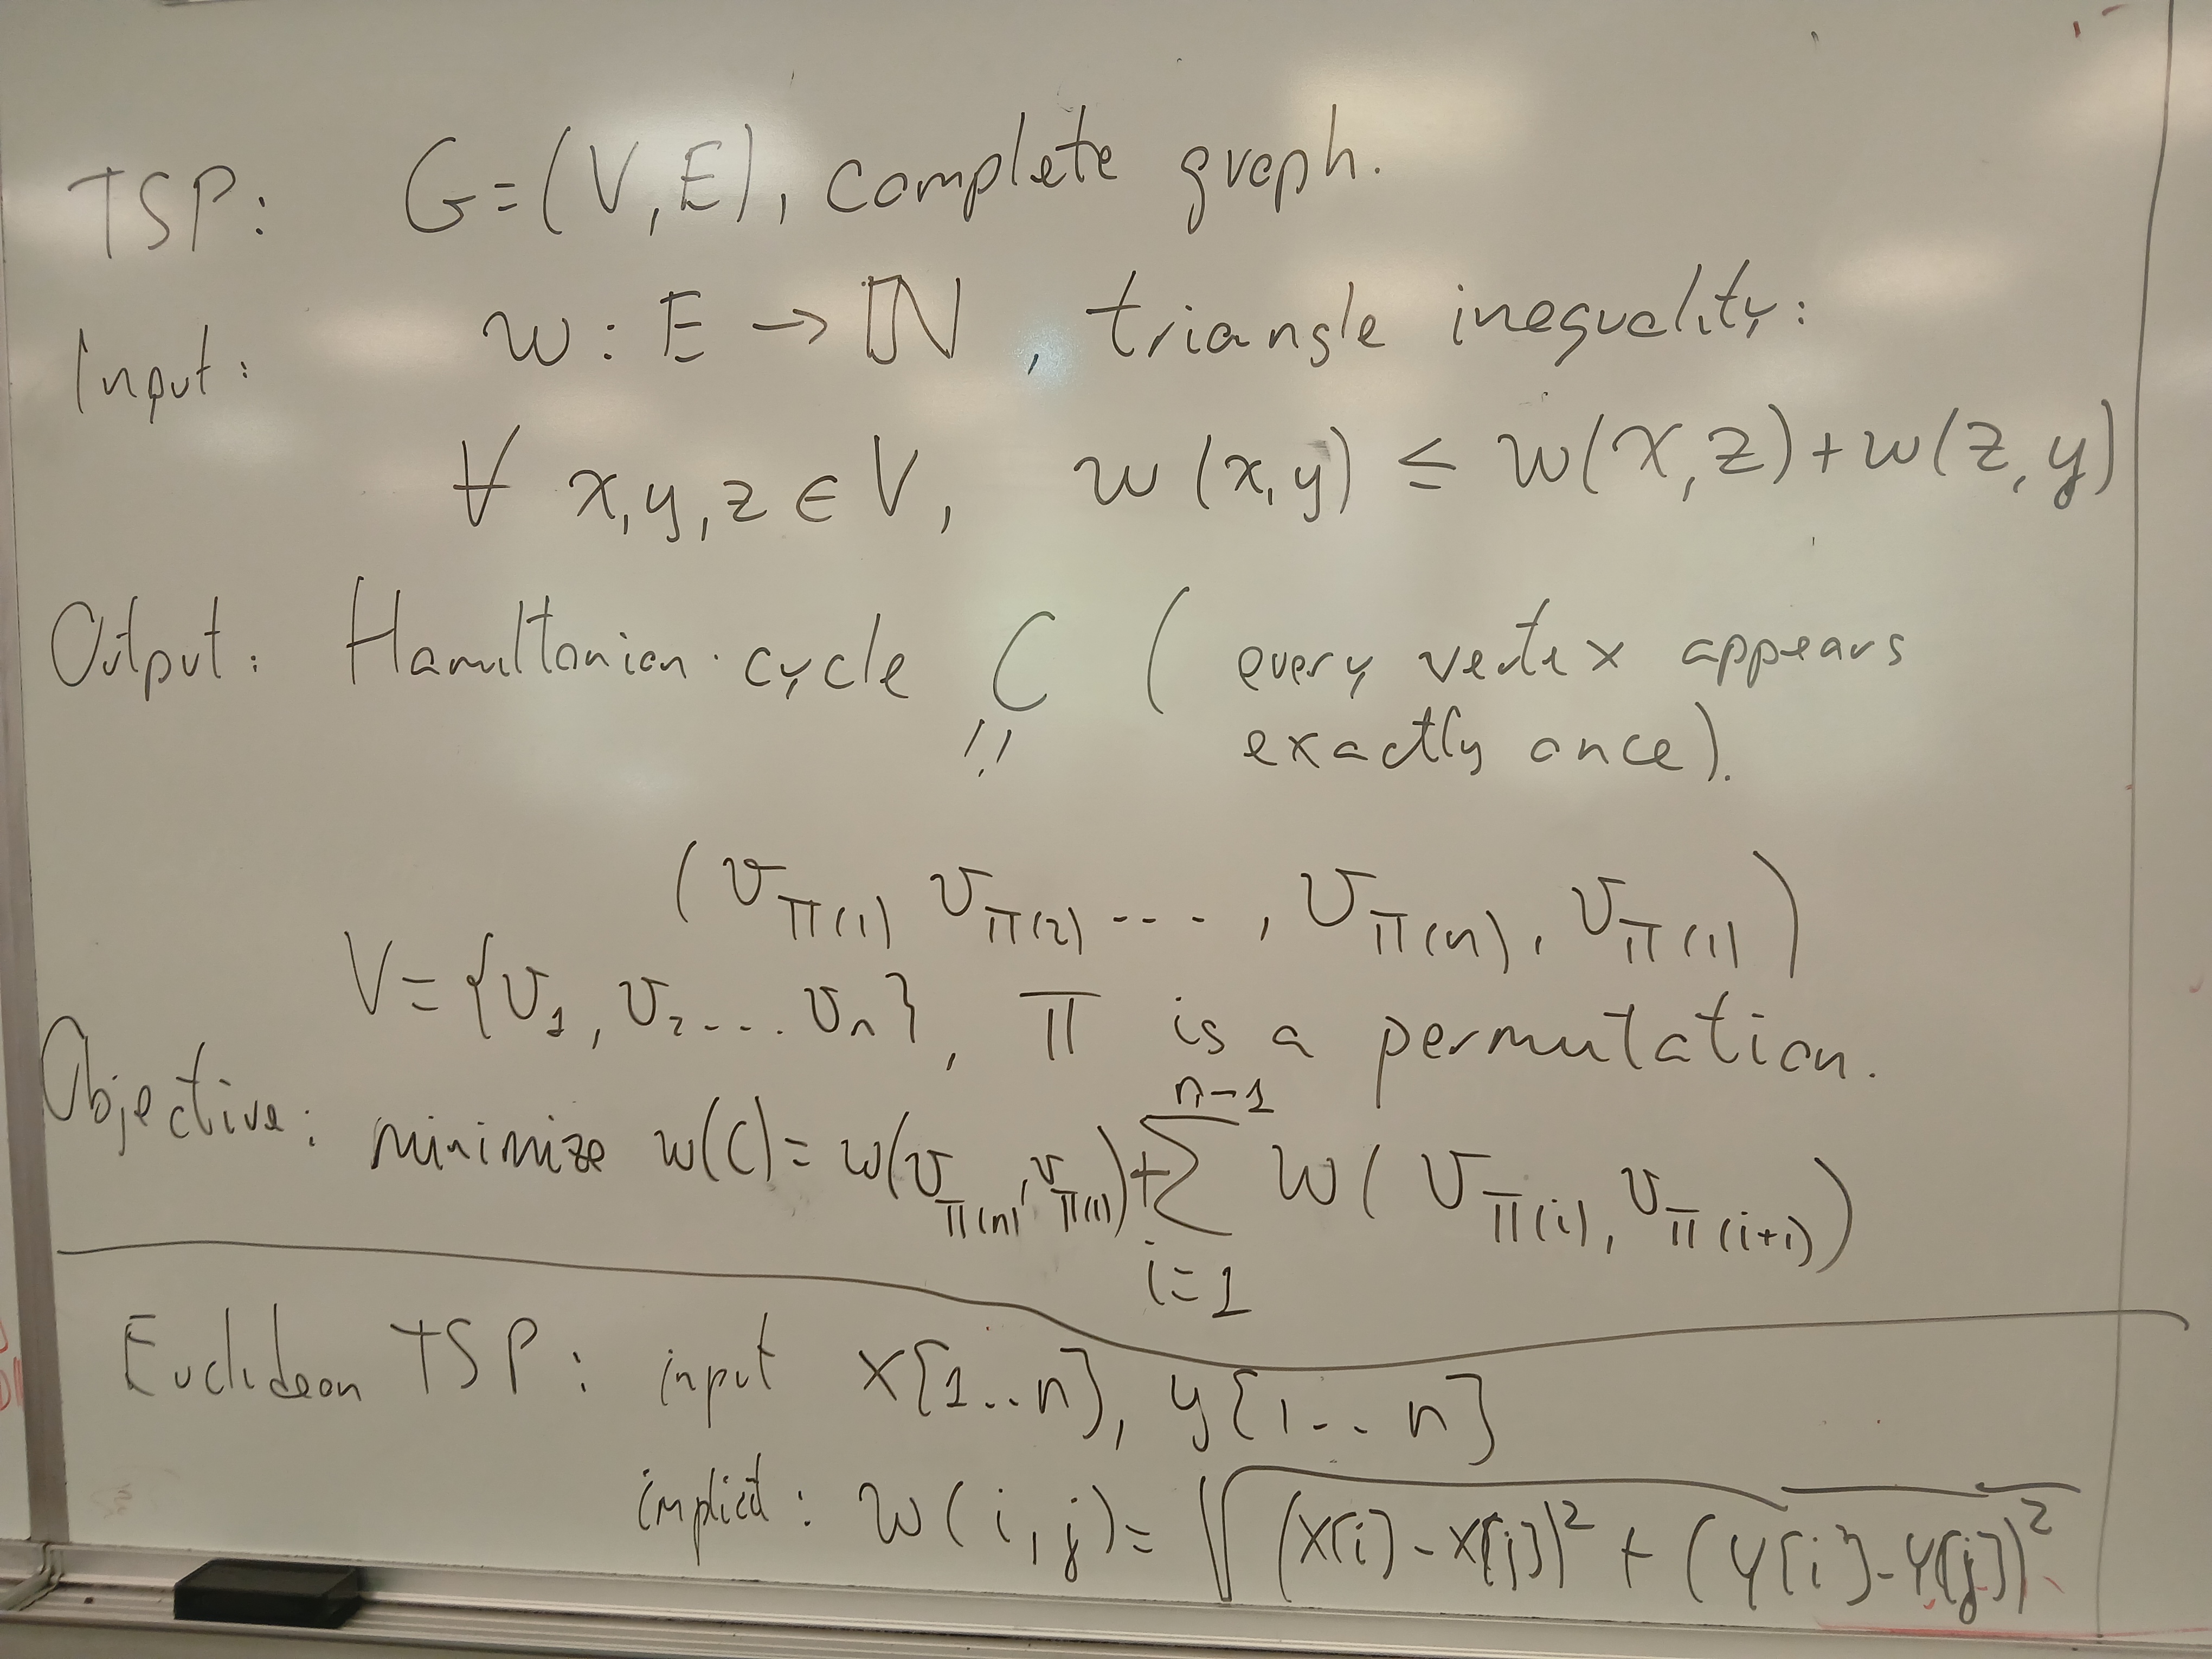 TSP: G=(V,E), complete graph.
Input: w : E → ℕ, triangle inequality:
∀ x,y,z ∈ V, w(x,y) ≤ w(x,z)+w(z,y)
Output: Hamiltonian cycle C (every vertex appears
!! exactly once).
(v_π(1) v_π(2) ---- , v_π(n), v_π(1))
V={v_1, v_2 ... v_n}, π is a permutation.
Objective: minimize w(C)= w(v_π(n), v_π(1)) + ∑_{i=1}^{n-1} w(v_π(i), v_π(i+1))
Euclidean TSP: input X[1..n], y[1..n]
implicit: w(i,j)= √((X[i]-X[j])² + (Y[i]-Y[j])²)